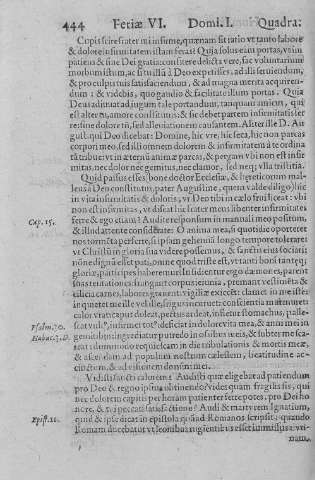 444 Feriæ VI. Domi. I. Quadra:
Cupis scire frater mi infirme, quænam sit ratio vt tanto labore
& dolore infirmitatem istam feras? Quia solus eim portas, vt im
patiens & sine Dei gratia:
morbum istum, ac si tu illũ à Deo expetisses, ad illi seruiendum,
& pro culpis tuis satisfaciendum, & ad magna merita acquiren-
dum: & videbis, quo gaudio & facilitate illum portas. Quia
Deus adiuuat ad iugum tale portandum, tanquam amicus, qui
est alter tu, amore constitutus: & sic debet partem infirmitatis fer
re: sine dolore tñ, sed alleuiationem causantem. Alter ille D. Au
gust. qui Deo dicebat: Domine, hic vre, hic seca, hic non parcas
corpori meo, sed illi omnem dolorem & infirmitatem à te ordina
tã tribue: vt in æternũ animæ parcas, & pergam vbi non est infir
mitas, nec dolor nec gemitus, nec clamor, sed neq; vlla tristitia.
Quid passus es
lensã à Deo constitutus, pater Augustine, quem valde diligo) hic
in vita infirmitatis & doloris, vt Deo tibi in cælo sit: vbi
non est infirmitas, vt discat hic frater meus libenter infirmitatem
ferre & ego etiam? Audite responsum in manuali meo positum,
& illud attente considerate: O anima mea, si quotidie oporteret
nos tormẽta perferre, si ipsam gehennã longo tempore tolerare,
vt Christũ in gloria sua videre possemus, & sanctis eius sociari:
nõne dignũ esset pati, omne quod triste est, vt tanti boni tantęq;
gloriæ, participes haberemur? Insidientur ergo dæmones, parent
suas tentationes: frangant corpus ieiunia, premant vestimẽta &
cilicia carnes, labores grauent: vigiliæ exiccẽt: clamet in me iste:
inquietet me ille vel ille, frigus incuruet: conscientia murmuret:
calor vrat: caput doleat, pectus ardeat, infletur stomachus, palle-
scat vultꝰ, infirmer totꝰ: deficiat in dolore vita mea, & anni mei in
gemitibus: ingrediatur putredo in ossibus meis, & subter me sca-
teat: vt requiescam in die tribulationis & mortis meæ,
& ascendam ad populum nostrum cælestem, beatitudine ac-
cinctum, & ad visionem dei
Vidistis satis clarum? Audisti quæ eligebat ad patiendum
pro Deo & regno ipsius obtinendo? Vides quam fragilis sis, qui
nec dolorem capitis per horam patienter ferre potes, pro Dei ho
nore, & tui peccati satisfactione? Audi & martyrem Ignatium,
quid & ipse dicat in epistola quadam ad Romanos scripta: quando
Romam ducebatur vt leonibus rugientibus esset iussus: vti-
nam
Cap. 15.
Psalm. 30.
Habac. 3. D.
Epist. 12.